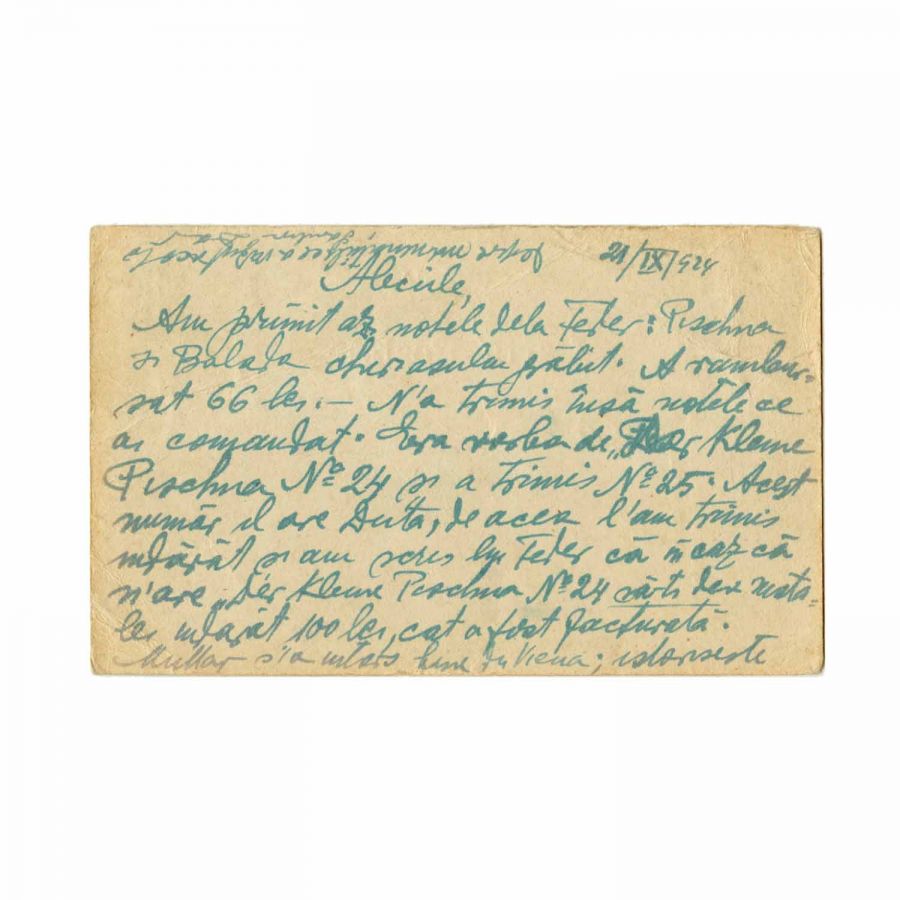 21/IX/924
Alecule,
Am primit az notele dela Feder: Pischna
și Balada cherasului grăbit. A rambur-
sat 66 lei. — N'a trimis însă notele ce
ai comandat. Era vorba de „Der Kleine
Pischna Nº 24 și a trimis Nº 25. Acest
număr îl are Duța, de aceea l'am trimis
îndărăt și am scris lui Feder că în caz că
n'are „Der Kleine Pischna Nº 24 să-ți dea mata-
lei îndărăt 100 lei, cat a fost facturată.
s'a întors bine din Viena; istorisește